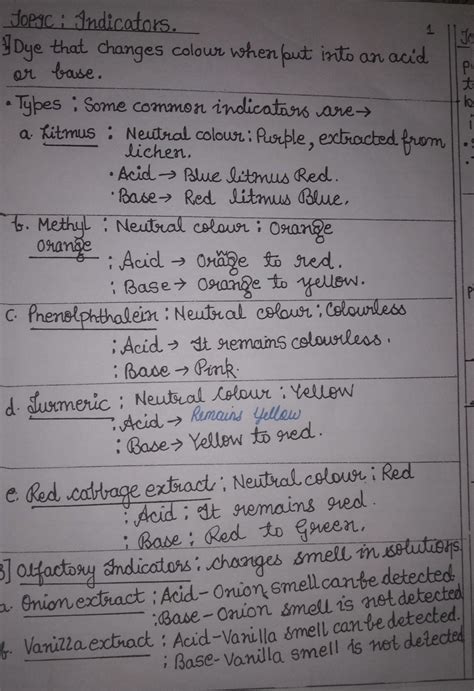 Topic : Indicators.
1
1] Dye that changes colour when put into an acid
or base.
• Types : Some common indicators are →
a. Litmus : Neutral colour : Purple, extracted from
lichen.
• Acid → Blue litmus Red.
• Base → Red litmus Blue.
b. Methyl : Neutral colour : Orange
orange
: Acid → Orange to red.
: Base → Orange to yellow.
C. Phenolphthalein : Neutral colour : Colourless
: Acid → It remains colourless.
: Base → Pink.
d. Turmeric : Neutral Colour : Yellow
: Acid → Remains Yellow
: Base → Yellow to red.
e. Red cabbage extract : Neutral colour : Red
: Acid : It remains red.
: Base : Red to Green.
B] Olfactory Indicators : changes smell in solutions.
a. Onion extract : Acid - Onion smell can be detected
: Base - Onion smell is not detected
b. Vanilla extract : Acid - Vanilla smell can be detected.
: Base - Vanilla smell is not detected